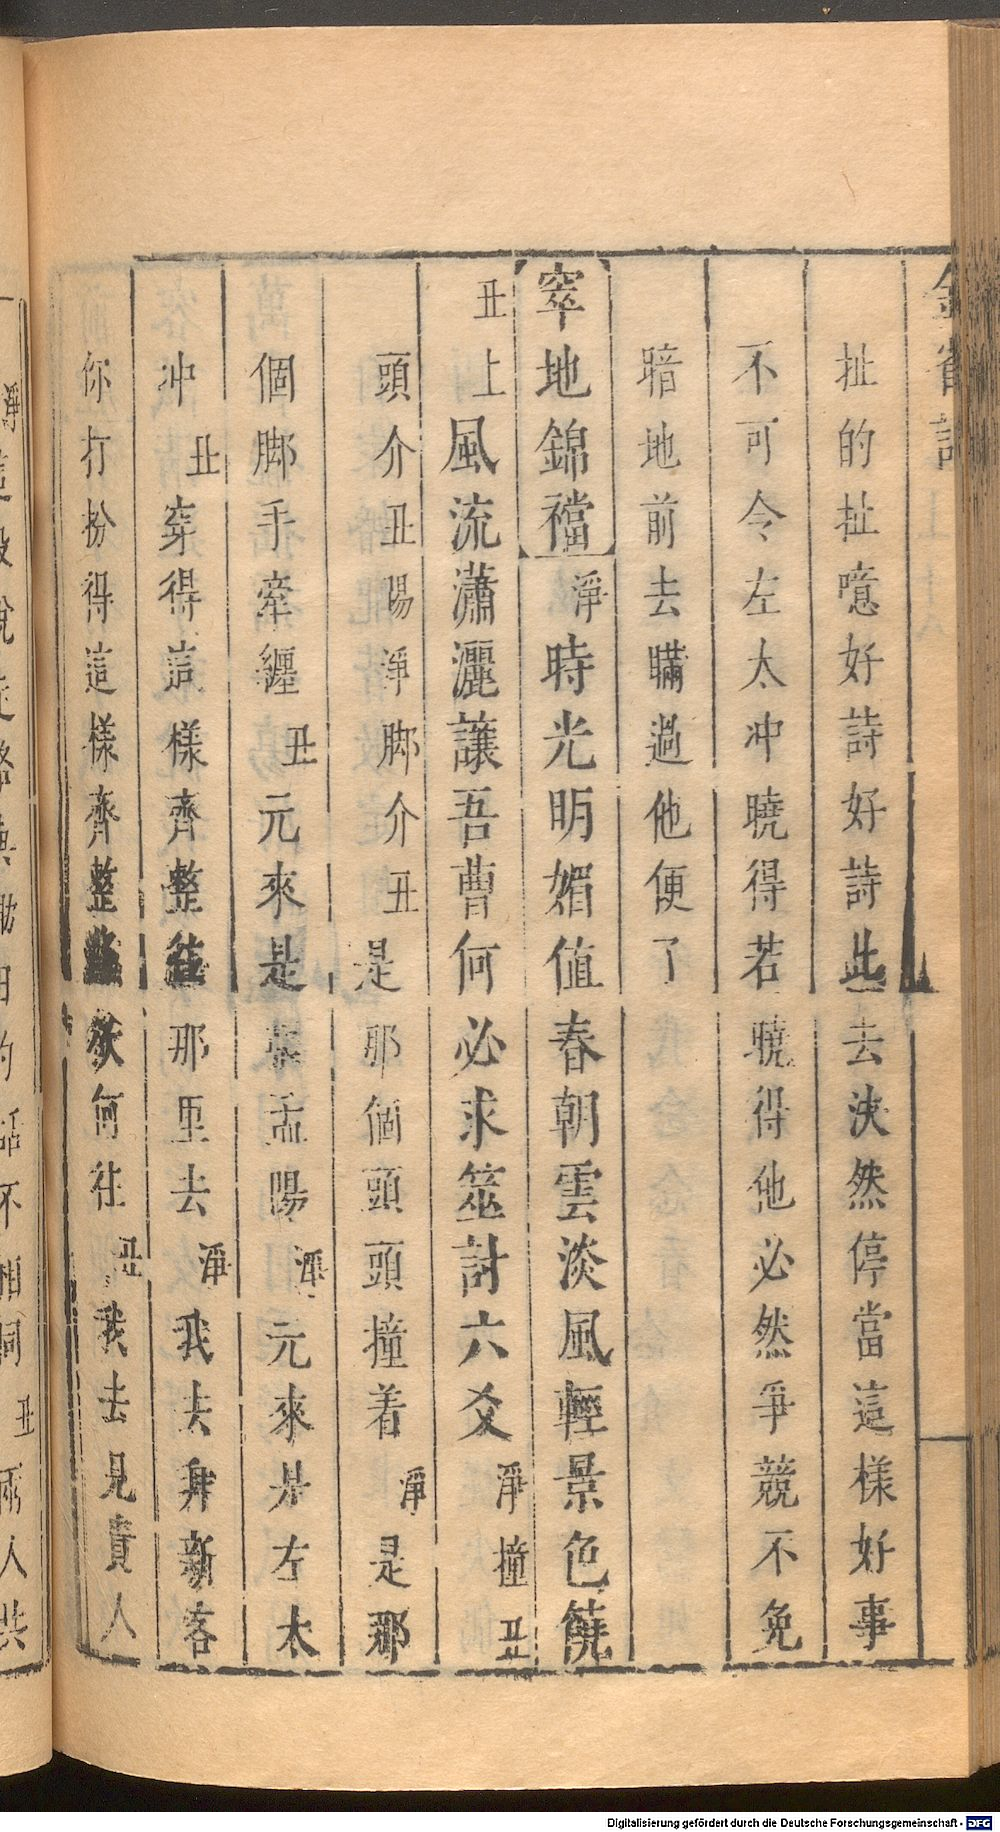 金雀記
扯的扯噫好詩好詩此去決然停當這樣好事
不可令左太冲曉得若曉得他必然爭競不免
暗地前去瞞過他便了
窣地錦襠淨時光明媚值春朝雲淡風輕景色饒
丑上風流瀟灑讓吾曹何必求筮討六爻淨撞丑
頭介丑陽淨脚介丑是那個頭頭撞着淨是那
個脚手牽纏丑元來是張孟陽淨元來是左太
冲丑穿得這樣齊整往那里去淨我去拜新客
你打扮得這樣齊整欲何往丑我去見貴人
Digitalisierung gefördert durch die Deutsche Forschungsgemeinschaft - DFG